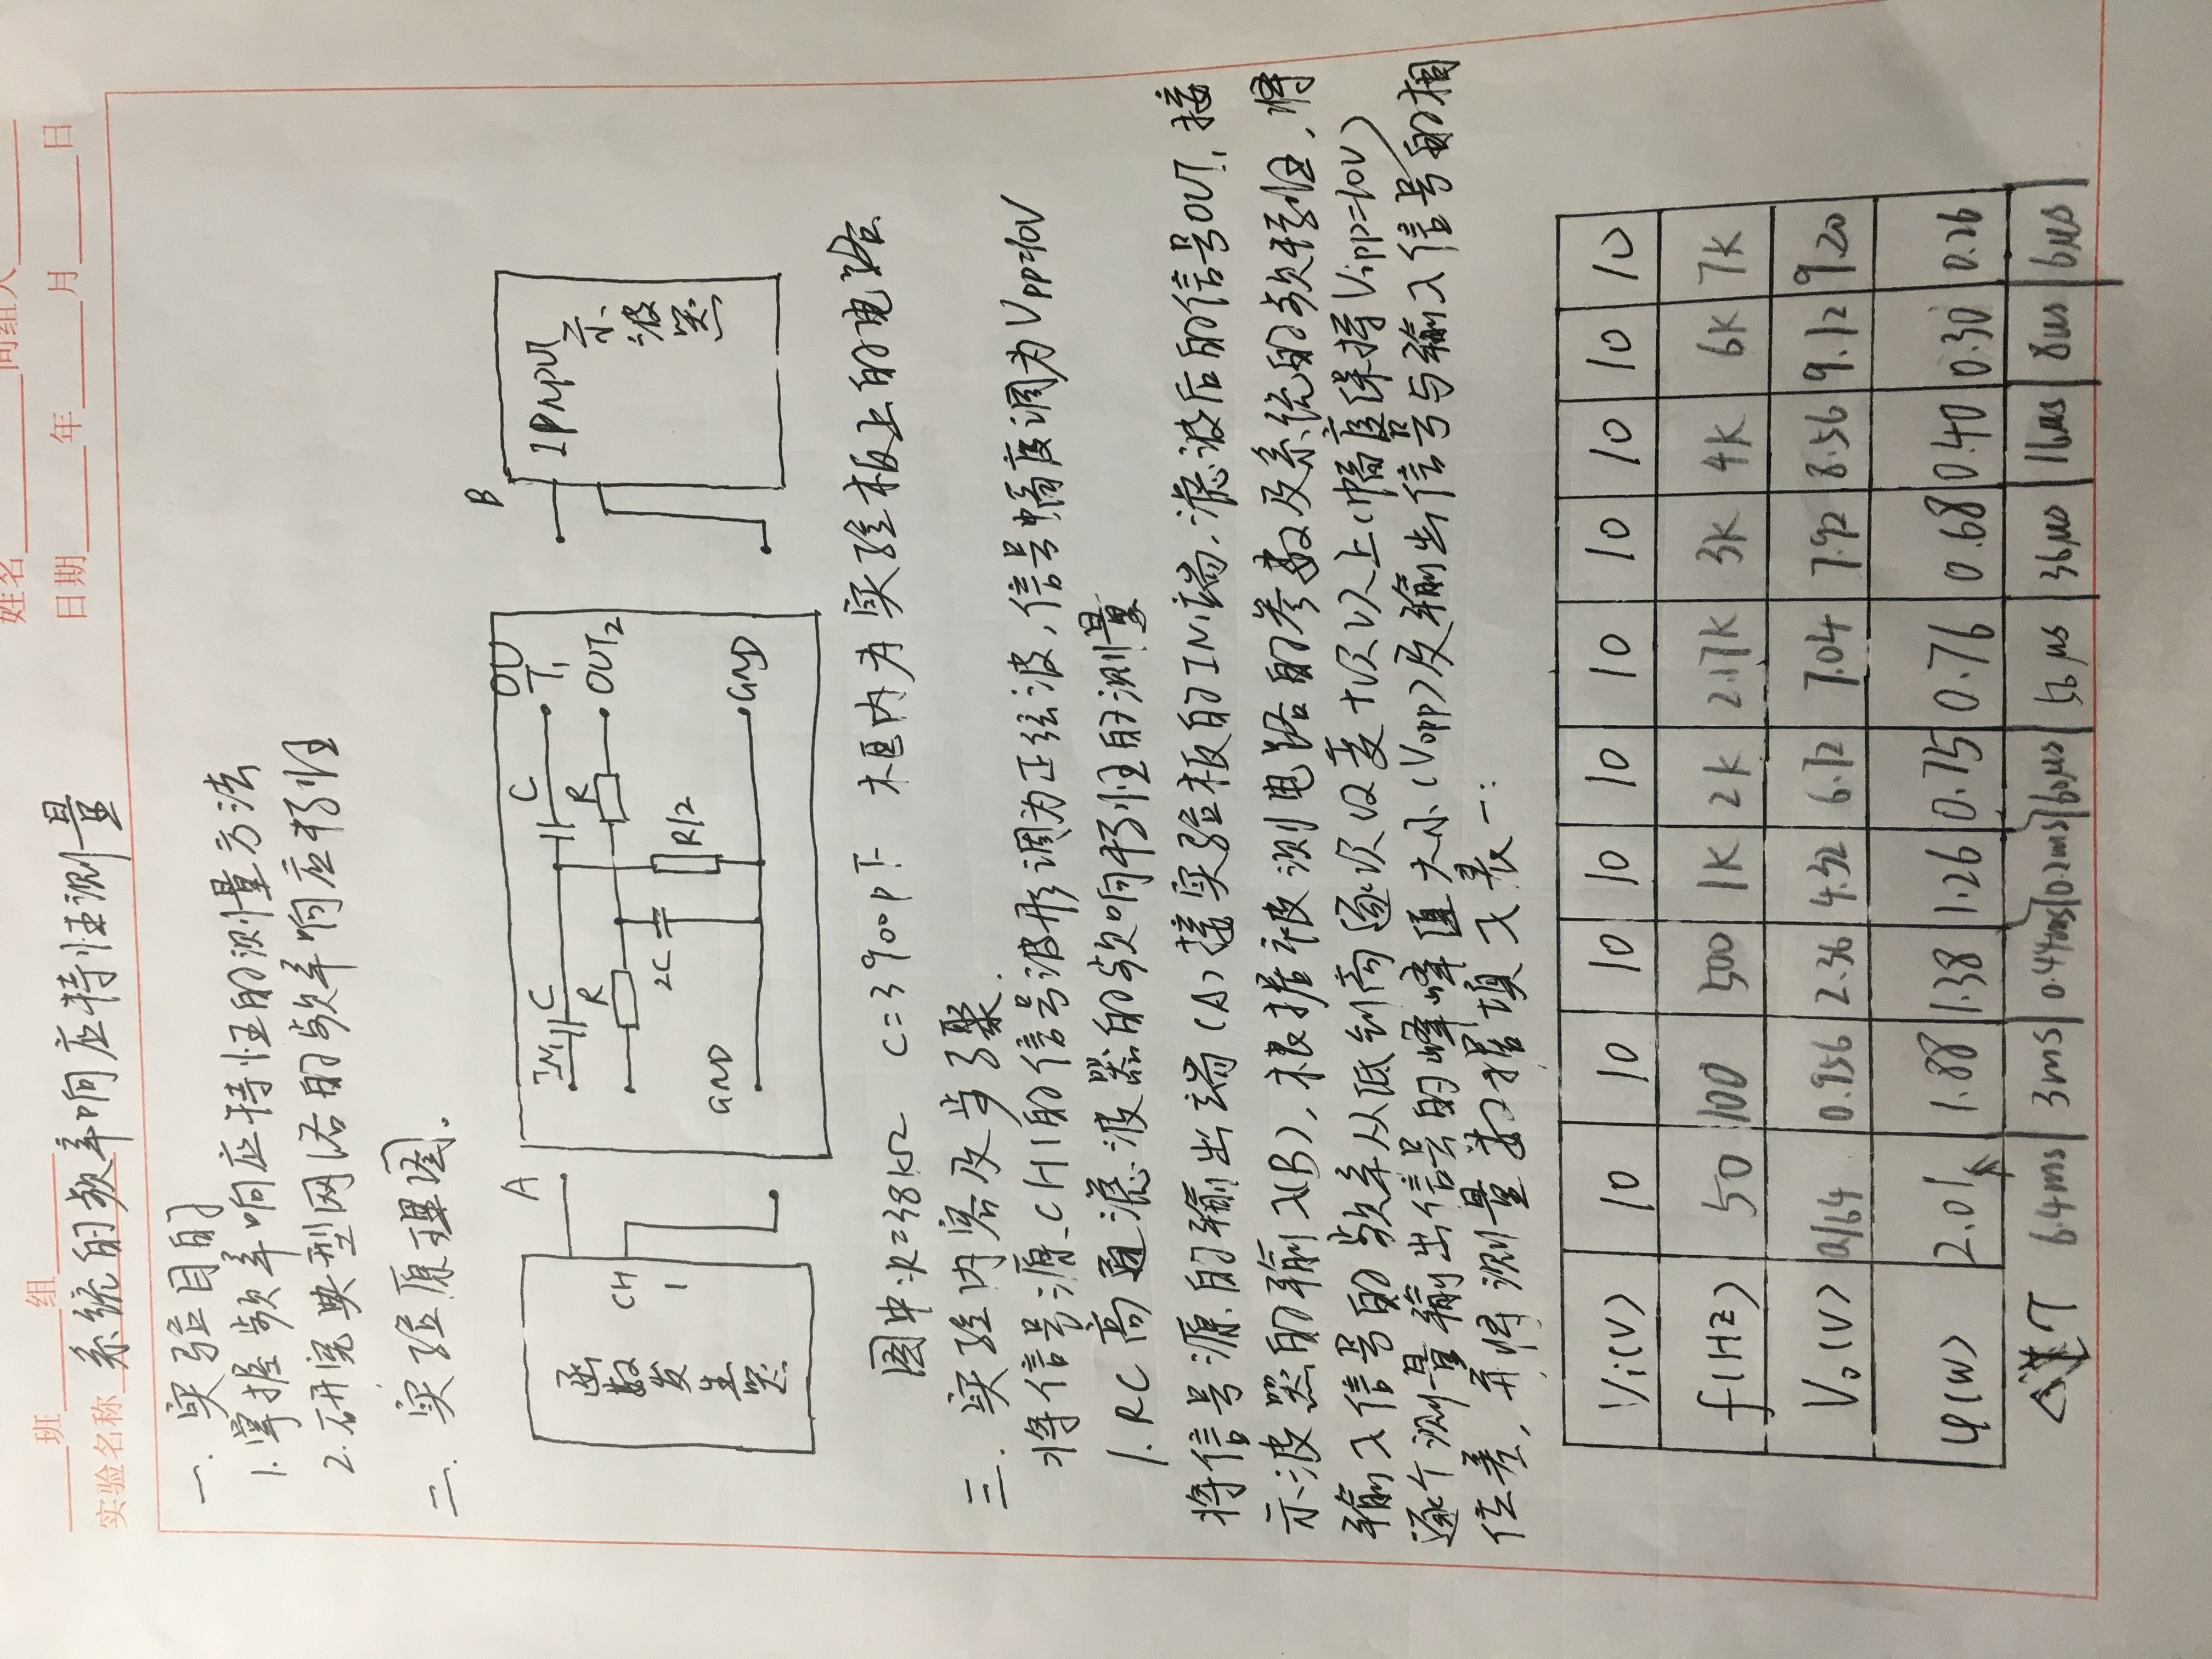 姓名 同组人
班 组
日期 年 月 日
实验名称 系统的频率响应特性测量
一. 实验目的
1.掌握频率响应特性的测量方法
2.研究典型网络的频率响应特性
二. 实验原理图。
函数发生器 CH1
A
IN1 C C OUT1
R R OUT2
2C R/2
GND GND
B
IPNPUT 示波器
图中:R=38KΩ C=3900PF 框内为实验板上的电路
三. 实验内容及步骤.
将信号源CH1的信号波形调为正弦波,信号幅度调为Vpp=10V
1.RC高通滤波器的频响特性的测量
将信号源的输出端(A)接实验板的IN1端,滤波后的信号OUT1接
示波器的输入(B),根据被测电路的参数及系统的频特性,将
输入信号的频率从低到高逐次改变十次以上(幅度保持Vipp=10V)
逐个测量输出信号的峰峰值大小(Vopp)及输出信号与输入信号的相
位差,并将测量数据填入表一:
Vi(V) 10 10 10 10 10 10 10 10 10 10
f(HZ) 50 100 500 1K 2K 2.17K 3K 4K 6K 7K
Vo(V) 0.164 0.956 2.36 4.32 6.72 7.04 7.92 8.56 9.12 9.20
φ(w) 2.01 1.88 1.38 1.26 0.75 0.76 0.68 0.40 0.30 0.26
T 6.4ms 3ms 0.44ms 0.2ms 60μs 56μs 36μs 16μs 8us 6μs